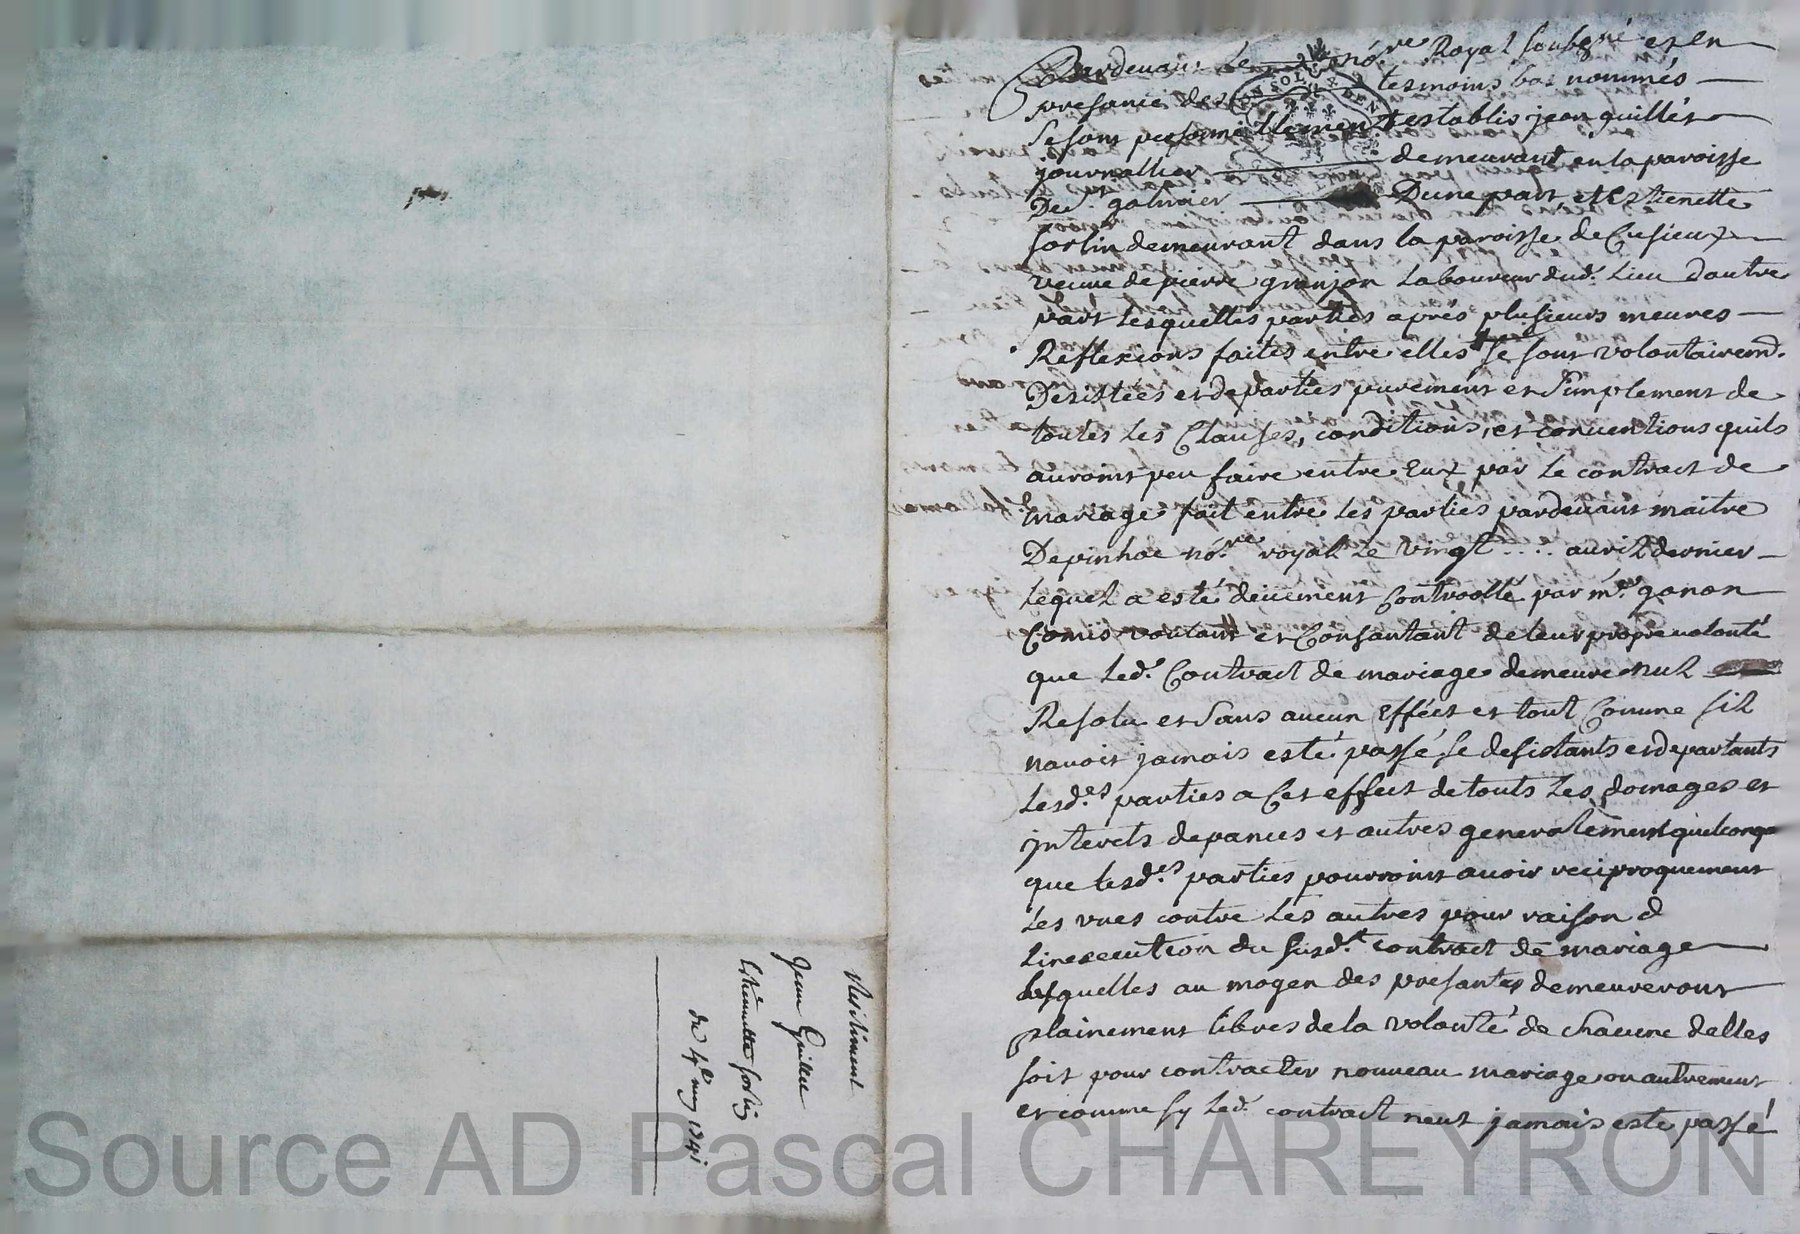 Pardevant Le no.re Royal soubsigné et en
presance des tesmoins bas nommés
se sont personnellement establis jean guillier
journallier demeurant en la paroisse
De st galmier D'une part, et Estienette
sorlin demeurant dans la paroisse de Cusieux
veuve de pierre granjon Laboureur dud. Lieu dautre
part Lesquelles parties aprés plusieurs meures
Reflexions faites entre elles se sont volontairemt.
Desistées et departies purement et simplement de
toutes les Clauses, conditions, et conventions quils
auroint peu faire entre Eux par Le contract de
mariage fait entre Les parties pardevant maitre
Depinhac no.re royal Le vingt .... avril dernier
Lequel a esté deuement Controollé par me. ganon
Comis voulant et Consantant de leur propre volonté
que Led. Contract de mariage demeure nul
Resolu et sans aucun Efféct et tout Comme sil
navoit jamais esté passé se desistants et departants
Lesd.es parties a Cet effect de touts Les domages et
jnterets depances et autres generalement quelconqe
que lesd.es parties pourroint avoir reciproquement
Les unes contre Les autres pour raison d
Linexecution du susd.t contract de mariage
Lesquelles au moyen des presantes demeureront
plainement libres de la volonté de Chacune delles
soit pour contracter nouveau mariage ou autrement
et comme sy Led. contract neut jamais este passé
Resiliment
Jean Guillié
Estiennette sorlin
du 4e may 1741
Source AD Pascal CHAREYRON